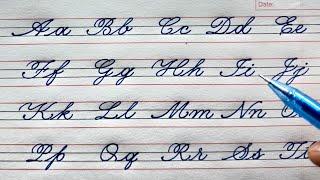 Date:
Aa Bb Cc Dd Ee
Ff Gg Hh Ii Jj
Kk Ll Mm Nn O
Pp Qq Rr Ss Tt